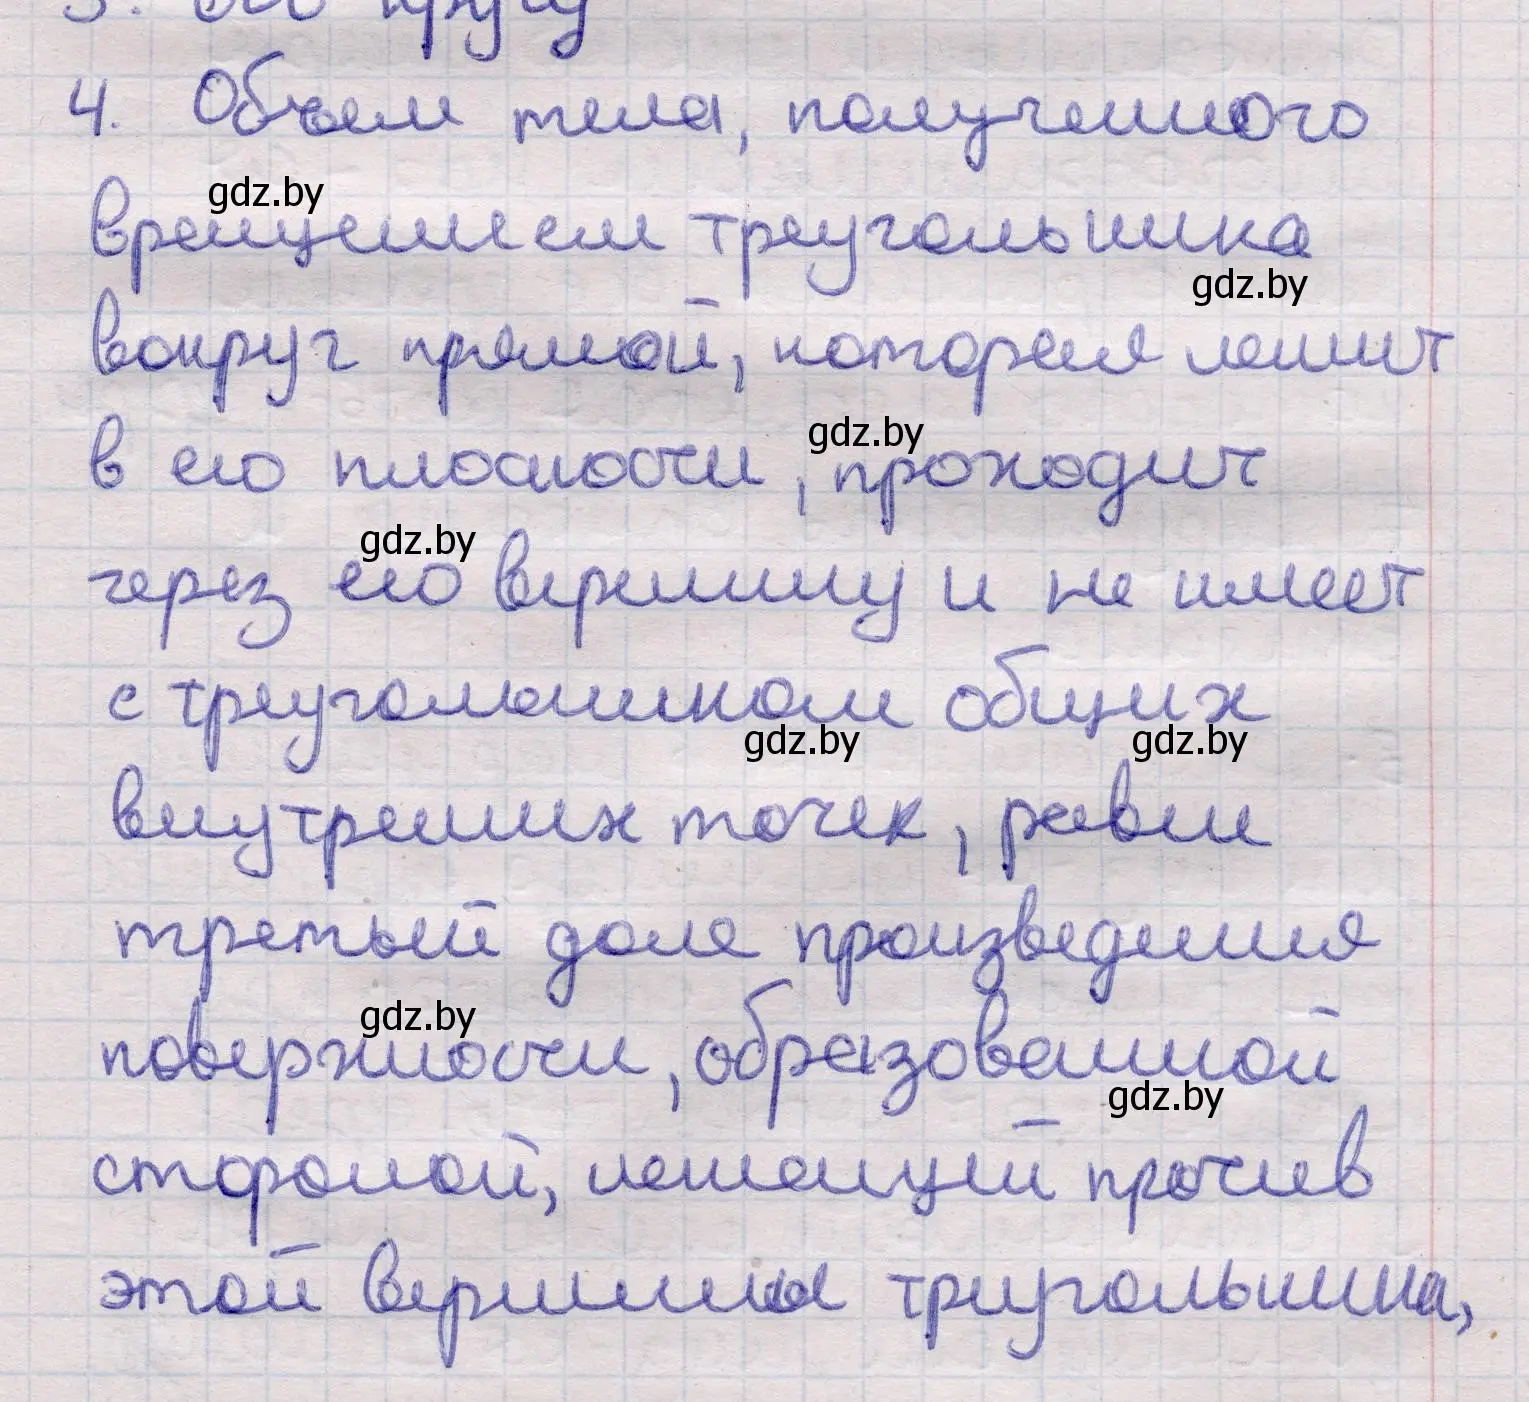 4. Объем тела, полученного
gdz.by
вращением треугольника
gdz.by
вокруг прямой, которая лежит
gdz.by
в его плоскости, проходит
gdz.by
через его вершину и не имеет
с треугольником общих
gdz.by gdz.by
внутренних точек, равен
третьей доле произведения
gdz.by
поверхности, образованной
gdz.by
стороной, лежащей против
этой вершины треугольника,